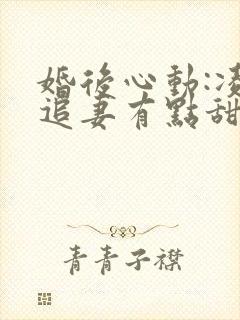 婚後心動:凌
追妻有點甜
青青子襟